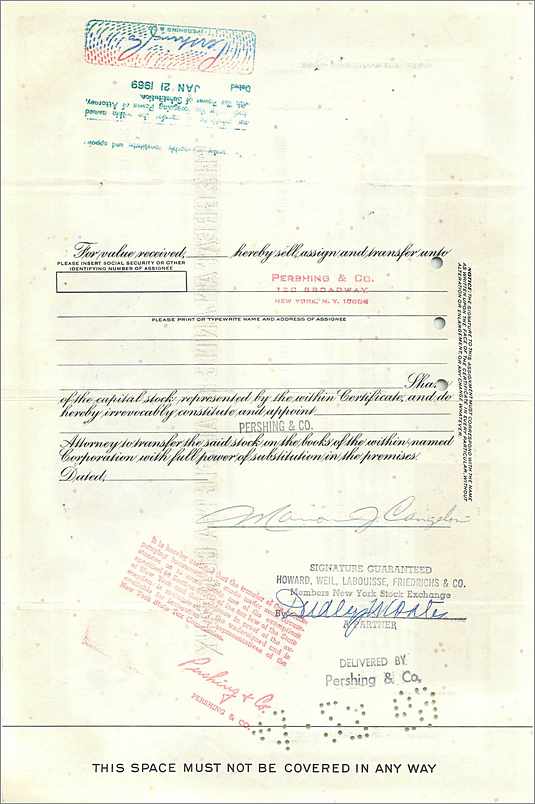 PERSHING &
Dated JAN 21 1969
with the Power of Substitution.
foregoing Power of Attorney,
constitute and appoint
For value received, hereby sell, assign and transfer unto
PLEASE INSERT SOCIAL SECURITY OR OTHER
IDENTIFYING NUMBER OF ASSIGNEE
PERSHING & CO.
120 BROADWAY
NEW YORK, N. Y. 10005
PLEASE PRINT OR TYPEWRITE NAME AND ADDRESS OF ASSIGNEE
Sha
of the capital stock represented by the within Certificate, and do
hereby irrevocably constitute and appoint
PERSHING & CO.
Attorney to transfer the said stock on the books of the within named
Corporation with full power of substitution in the premises.
Dated,
NOTICE: THE SIGNATURE TO THIS ASSIGNMENT MUST CORRESPOND WITH THE NAME
AS WRITTEN UPON THE FACE OF THE CERTIFICATE IN EVERY PARTICULAR, WITHOUT
ALTERATION OR ENLARGEMENT OR ANY CHANGE WHATEVER.
Marion J Congdon
SIGNATURE GUARANTEED
HOWARD, WEIL, LABOUISSE, FRIEDRICHS & CO.
Members New York Stock Exchange
By
A PARTNER
It is hereby certified that the transfer of the
New York State Tax Commission.
Pershing & Co.
PERSHING & CO.
DELIVERED BY
Pershing & Co.
THIS SPACE MUST NOT BE COVERED IN ANY WAY